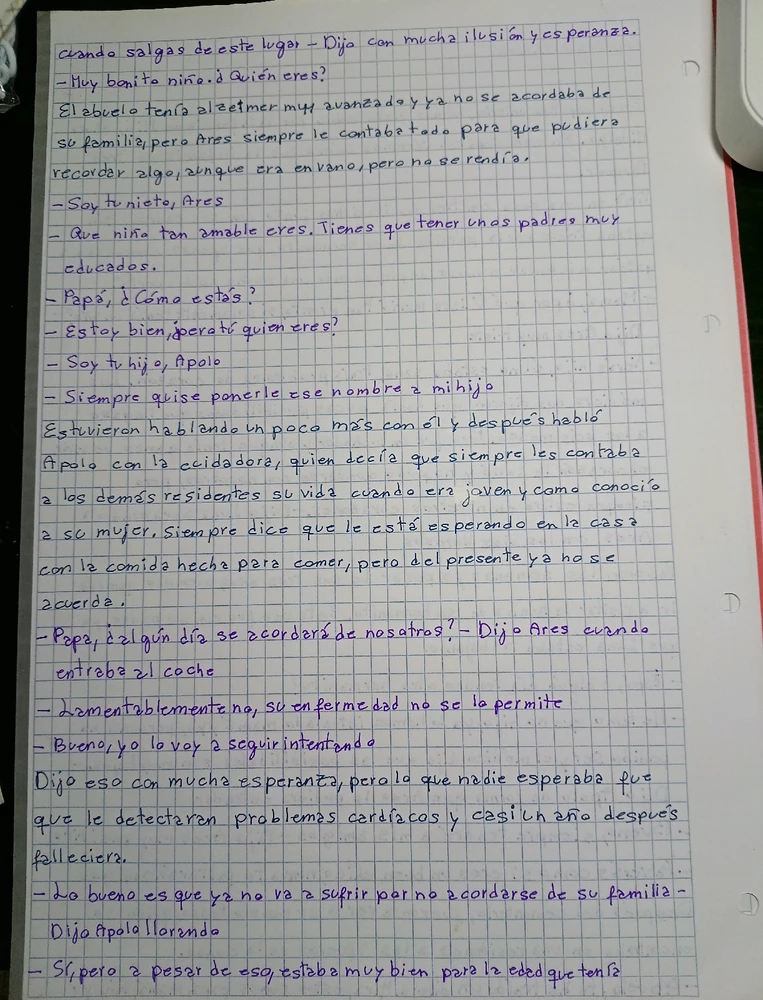 cuando salgas de este lugar - Dijo con mucha ilusión y esperanza.
- Muy bonito niño. ¿Quién eres?
El abuelo tenía alzeimer muy avanzado y ya no se acordaba de
su familia, pero Ares siempre le contaba todo para que pudiera
recordar algo, aunque era en vano, pero no se rendía.
- Soy tu nieto, Ares
- Que niño tan amable eres. Tienes que tener unos padres muy
educados.
- Papá, ¿Cómo estás?
- Estoy bien, ¿pero tú quien eres?
- Soy tu hijo, Apolo
- Siempre quise ponerle ese nombre a mi hijo
Estuvieron hablando un poco más con él y después habló
Apolo con la cuidadora, quien decía que siempre les contaba
a los demás residentes su vida cuando era joven y como conoció
a su mujer, siempre dice que le está esperando en la casa
con la comida hecha para comer, pero del presente ya no se
acuerda.
- Papa, ¿algún día se acordará de nosotros? - Dijo Ares cuando
entraba al coche
- Lamentablemente no, su enfermedad no se lo permite
- Bueno, yo lo voy a seguir intentando
Dijo eso con mucha esperanza, pero lo que nadie esperaba fue
que le detectaran problemas cardíacos y casi un año después
falleciera.
- Lo bueno es que ya no va a sufrir por no acordarse de su familia -
Dijo Apolo llorando
- Sí, pero a pesar de eso, estaba muy bien para la edad que tenía